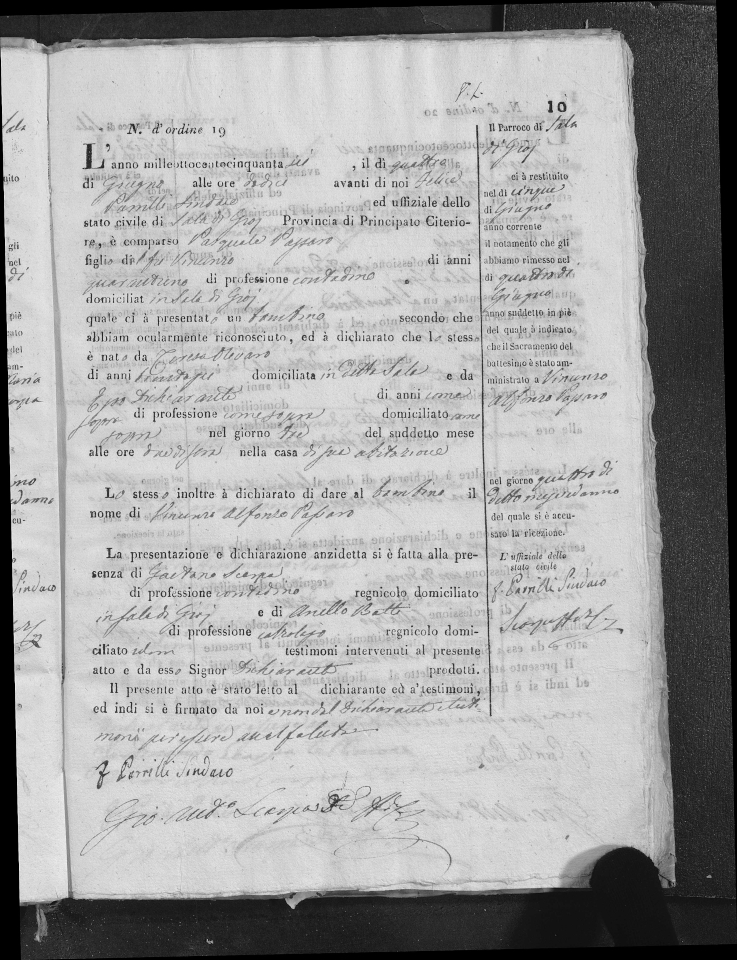 10
N. d'ordine 19
L'anno milleottocentocinquanta sei , il dì quattro
di Giugno alle ore dodici avanti di noi Felice
Parrilli Sindaco ed uffiziale dello
stato civile di Sala di Gioj Provincia di Principato Citerio-
re, è comparso Pasquale Passaro
figlio di fu Vincenzo di anni
quarantuno di professione contadino
domiciliat in Sala di Gioj
quale ci à presentato un bambino secondo che
abbiam ocularmente riconosciuto, ed à dichiarato che lo stess
è nato da Teresa Nevaro
di anni domiciliata in detta Sala e da
Esso Dichiarante di anni come
sopra di professione come sopra domiciliato come
sopra nel giorno tre del suddetto mese
alle ore due di sera nella casa di sua abitazione
Lo stesso inoltre à dichiarato di dare al bambino il
nome di Vincenzo Alfonzo Passaro
La presentazione e dichiarazione anzidetta si è fatta alla pre-
senza di Gaetano Scarpa
di professione contadino regnicolo domiciliato
in Sala di Gioj e di Aniello Batti
di professione calzolajo regnicolo domi-
ciliato idem testimoni intervenuti al presente
atto e da esso Signor Dichiarante prodotti.
Il presente atto è stato letto al dichiarante ed a' testimoni,
ed indi si è firmato da noi e non dal Dichiarante e testi-
monî per essere analfabeti
F Parrilli Sindaco
Gio: And.ª Scarpa
Il Parroco di Sala
di Gioj
ci à restituito
nel dì cinque
di Giugno
anno corrente
il notamento che gli
abbiamo rimesso nel
dì quattro di
Giugno
anno suddetto in piè
del quale à indicato
che il Sacramento del
battesimo è stato am-
ministrato a Vincenzo
Alfonzo Passaro
nel giorno quattro di
detto mese ed anno
del quale si è accu-
sato la ricezione.
L'uffiziale dello
stato civile
F Parrilli Sindaco
Scarpa